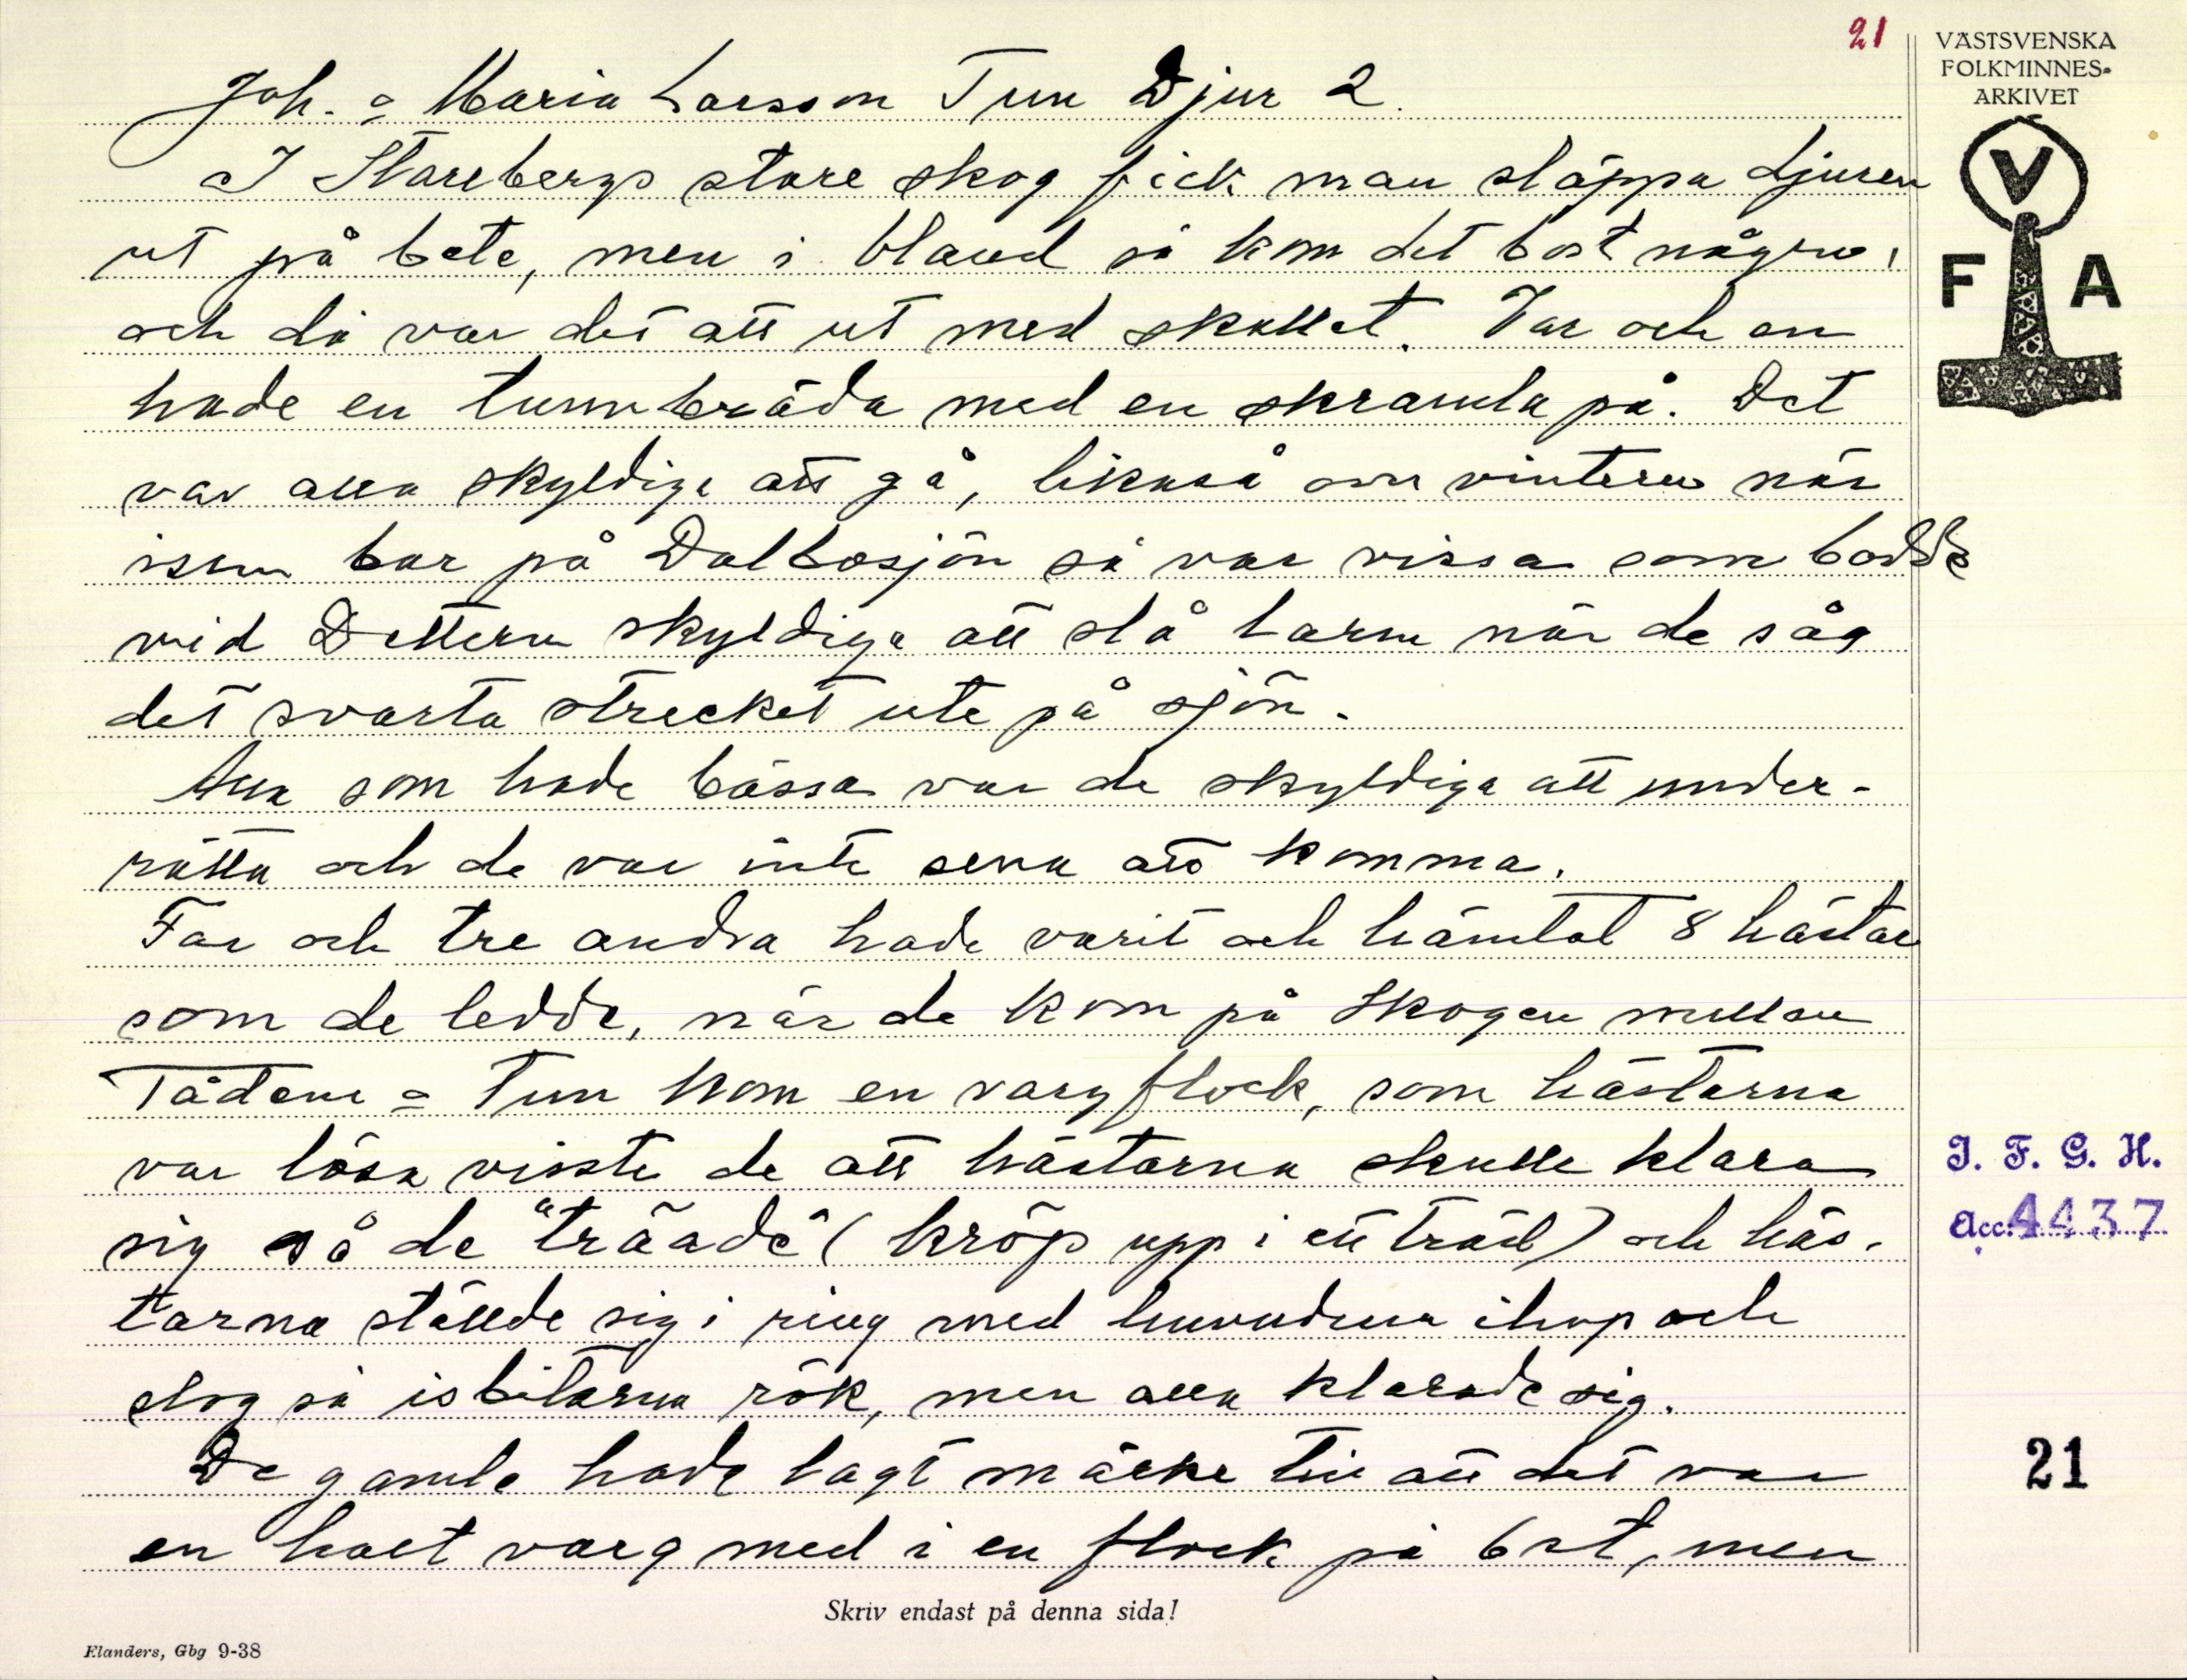 21
VÄSTSVENSKA
FOLKMINNES-
ARKIVET
V
F A
Joh. o Maria Larsson Tun Djur 2.
I Storebergs store skog fick man släppa djuren
ut på bete, men i bland så kom det bort några,
och då var det att ut med skallet. Var och en
hade en tunnbräda med en skramla på. Det
var alla skyldiga att gå, likaså om vintern när
isen bar på Dalbosjön så var vissa som bodde
vid Dettern skyldiga att slå larm när de såg
det svarta strecket ute på sjön.
Alla som hade bössa var de skyldiga att under-
rätta och de var inte sena att komma.
Far och tre andra hade varit och hämtat 8 hästar
som de ledde, när de kom på Skogen mellan
Tådene o Tun kom en vargflock, som hästarna
var lösa visste de att hästarna skulle klara
sig så de "träade" (kröp upp i ett träd) och häs-
tarna ställde sig i ring med huvudena ihop och
slog så isbitarna rök, men alla klarade sig.
De gamle hade lagt märke till att det var
en halt varg med i en flock på 6 st, men
J. F. G. H.
Acc. 4437
21
Skriv endast på denna sida!
Elanders, Gbg 9-38